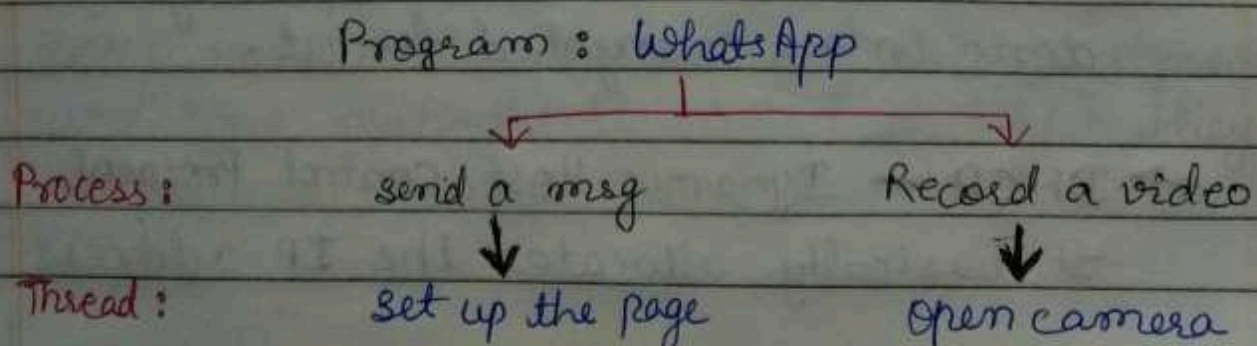 Program : WhatsApp
Process : send a msg Record a video
Thread : set up the page open camera